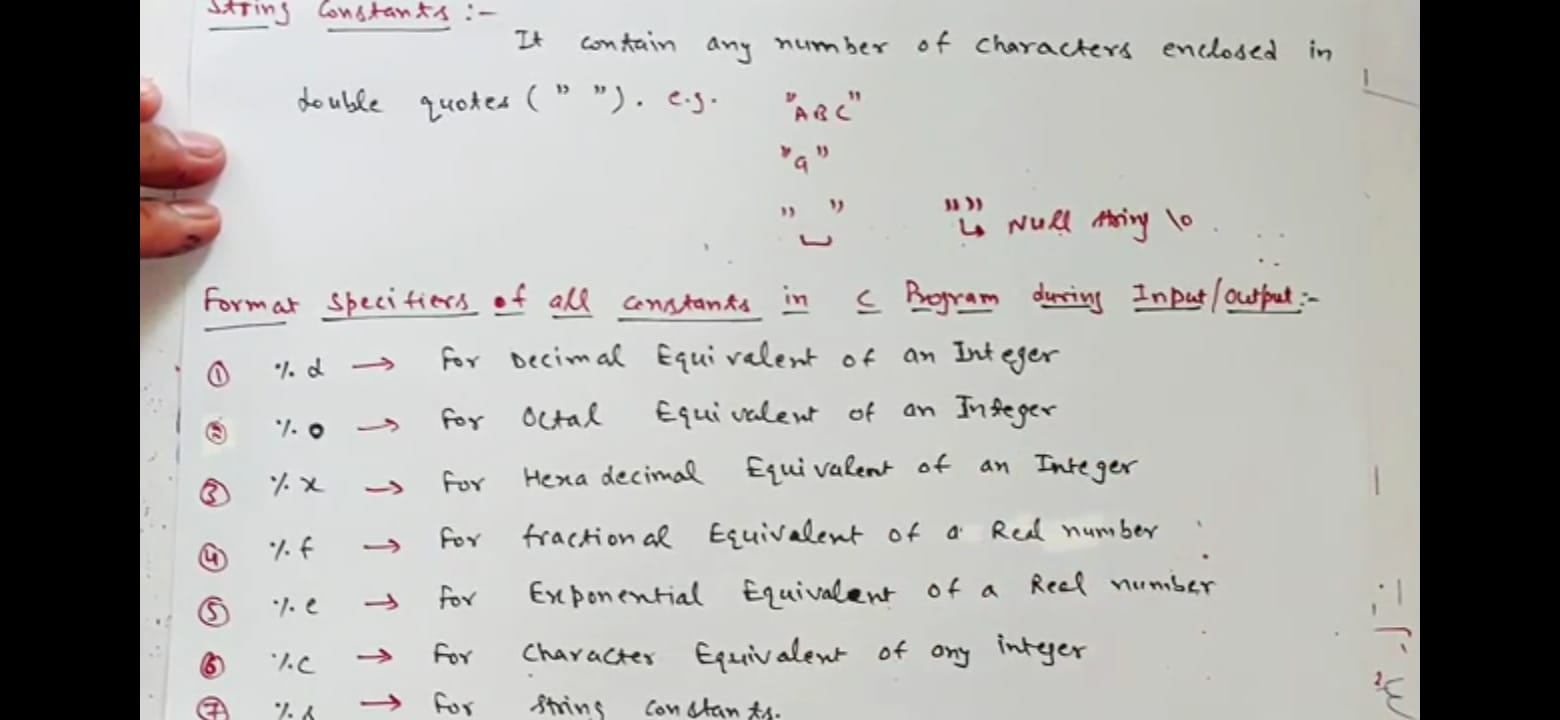 String Constants :-
It contain any number of characters enclosed in
double quotes ( " " ). e.g. "ABC"
"a"
" " "" 
↳ Null string \0
Format specifiers of all constants in C Program during Input/output:-
① %d → For Decimal Equivalent of an Integer
② %o → For Octal Equivalent of an Integer
③ %x → For Hexa decimal Equivalent of an Integer
④ %f → For fractional Equivalent of a Real number
⑤ %e → For Exponential Equivalent of a Real number
⑥ %c → For Character Equivalent of any integer
⑦ %s → For string constants.